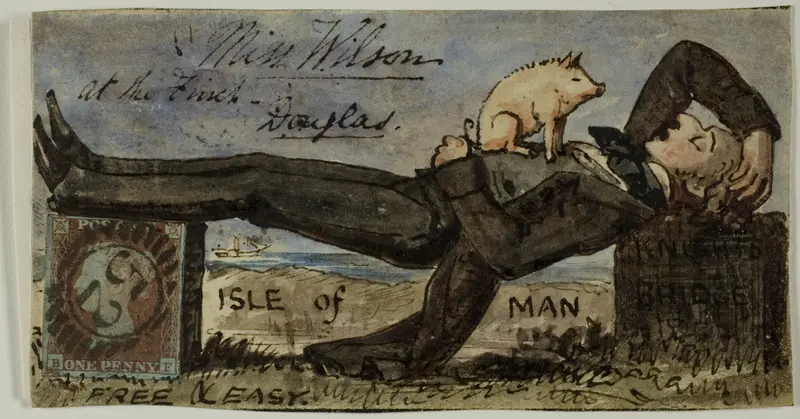 Miss Wilson
at the
Douglas.
KNIGHTS
BRIDGE
ISLE of MAN
ONE PENNY
FREE & EASY